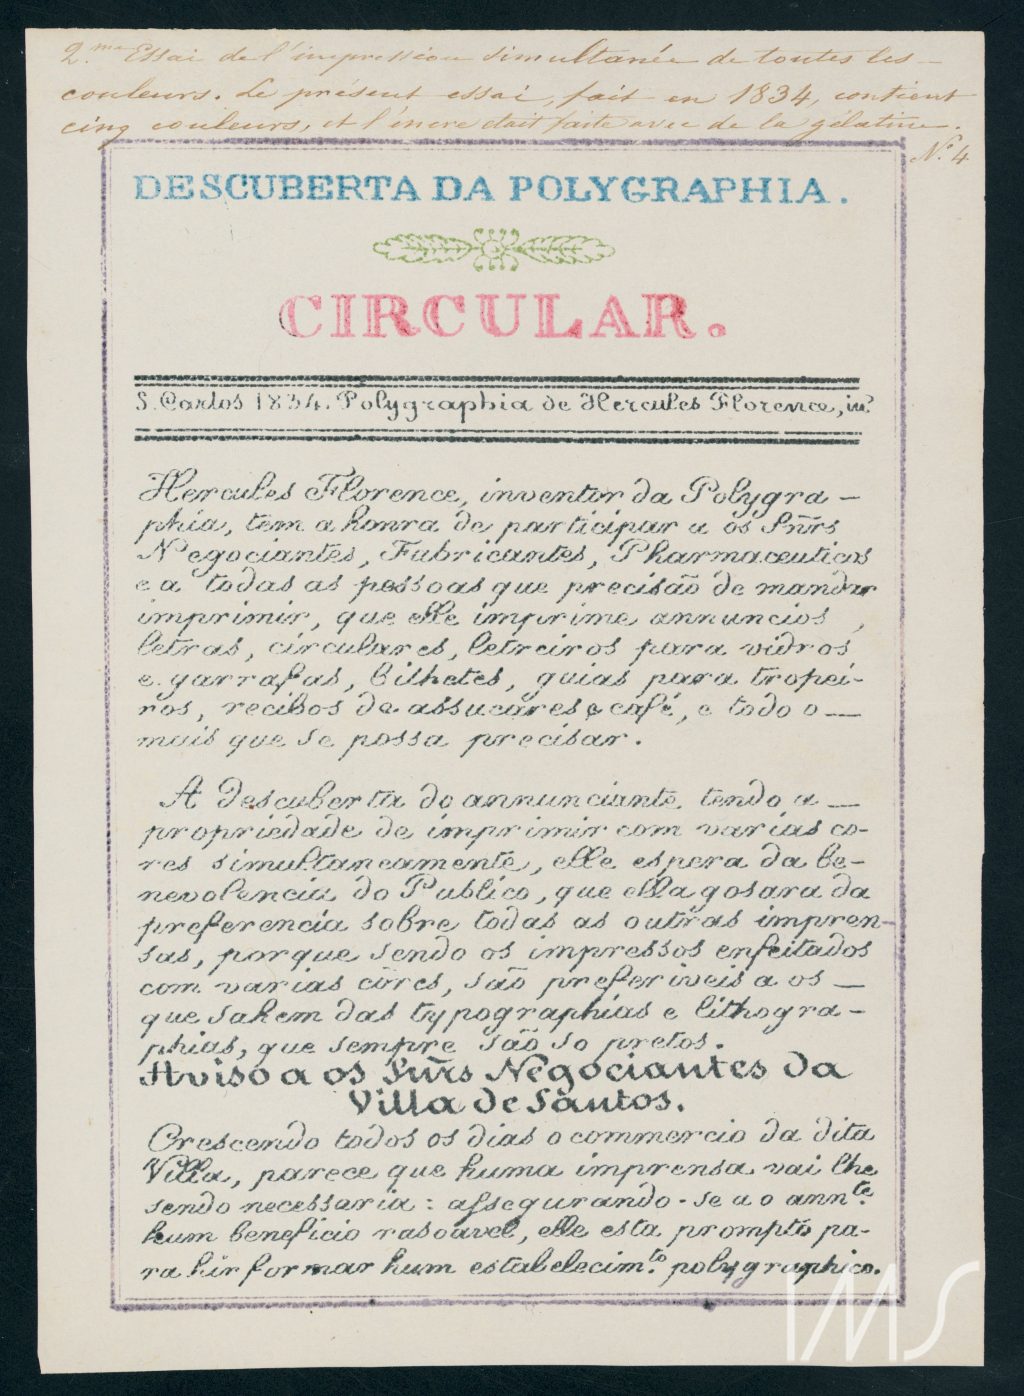 2.me Essai de l'impression simultanée de toutes les
couleurs. Le présent essai, fait en 1834, contient
cinq couleurs, et l'encre était faite avec de la gélatine.
N.o 4
DESCUBERTA DA POLYGRAPHIA.
CIRCULAR.
S. Carlos 1834. Polygraphia de Hercules Florence, in.r
Hercules Florence, inventor da Polygra-
phia, tem a honra de participar a os Sñrs
Negociantes, Fabricantes, Pharmaceuticos
e a todas as pessoas que precisão de mandar
imprimir, que elle imprime annuncios,
letras, circulares, letreiros para vidros
e garrafas, bilhetes, guias para tropei-
ros, recibos de assucares e café, e todo o
mais que se possa precisar.
A descuberta do annunciante tendo a
propriedade de imprimir com varias co-
res simultaneamente, elle espera da be-
nevolencia do Publico, que ella gosara da
preferencia sobre todas as outras impren-
sas, porque sendo os impressos enfeitados
com varias côres, são preferiveis a os
que sahem das typographias e lithogra-
phias, que sempre são so pretos.
Aviso a os Sñrs Negociantes da
Villa de Santos.
Crescendo todos os dias o commercio da dita
Villa, parece que huma imprensa vai lhe
sendo necessaria: assegurando-se a o ann.te
hum beneficio rasoavel, elle esta prompto pa-
ra hir formar hum estabelecim.to polygraphico.
IMS